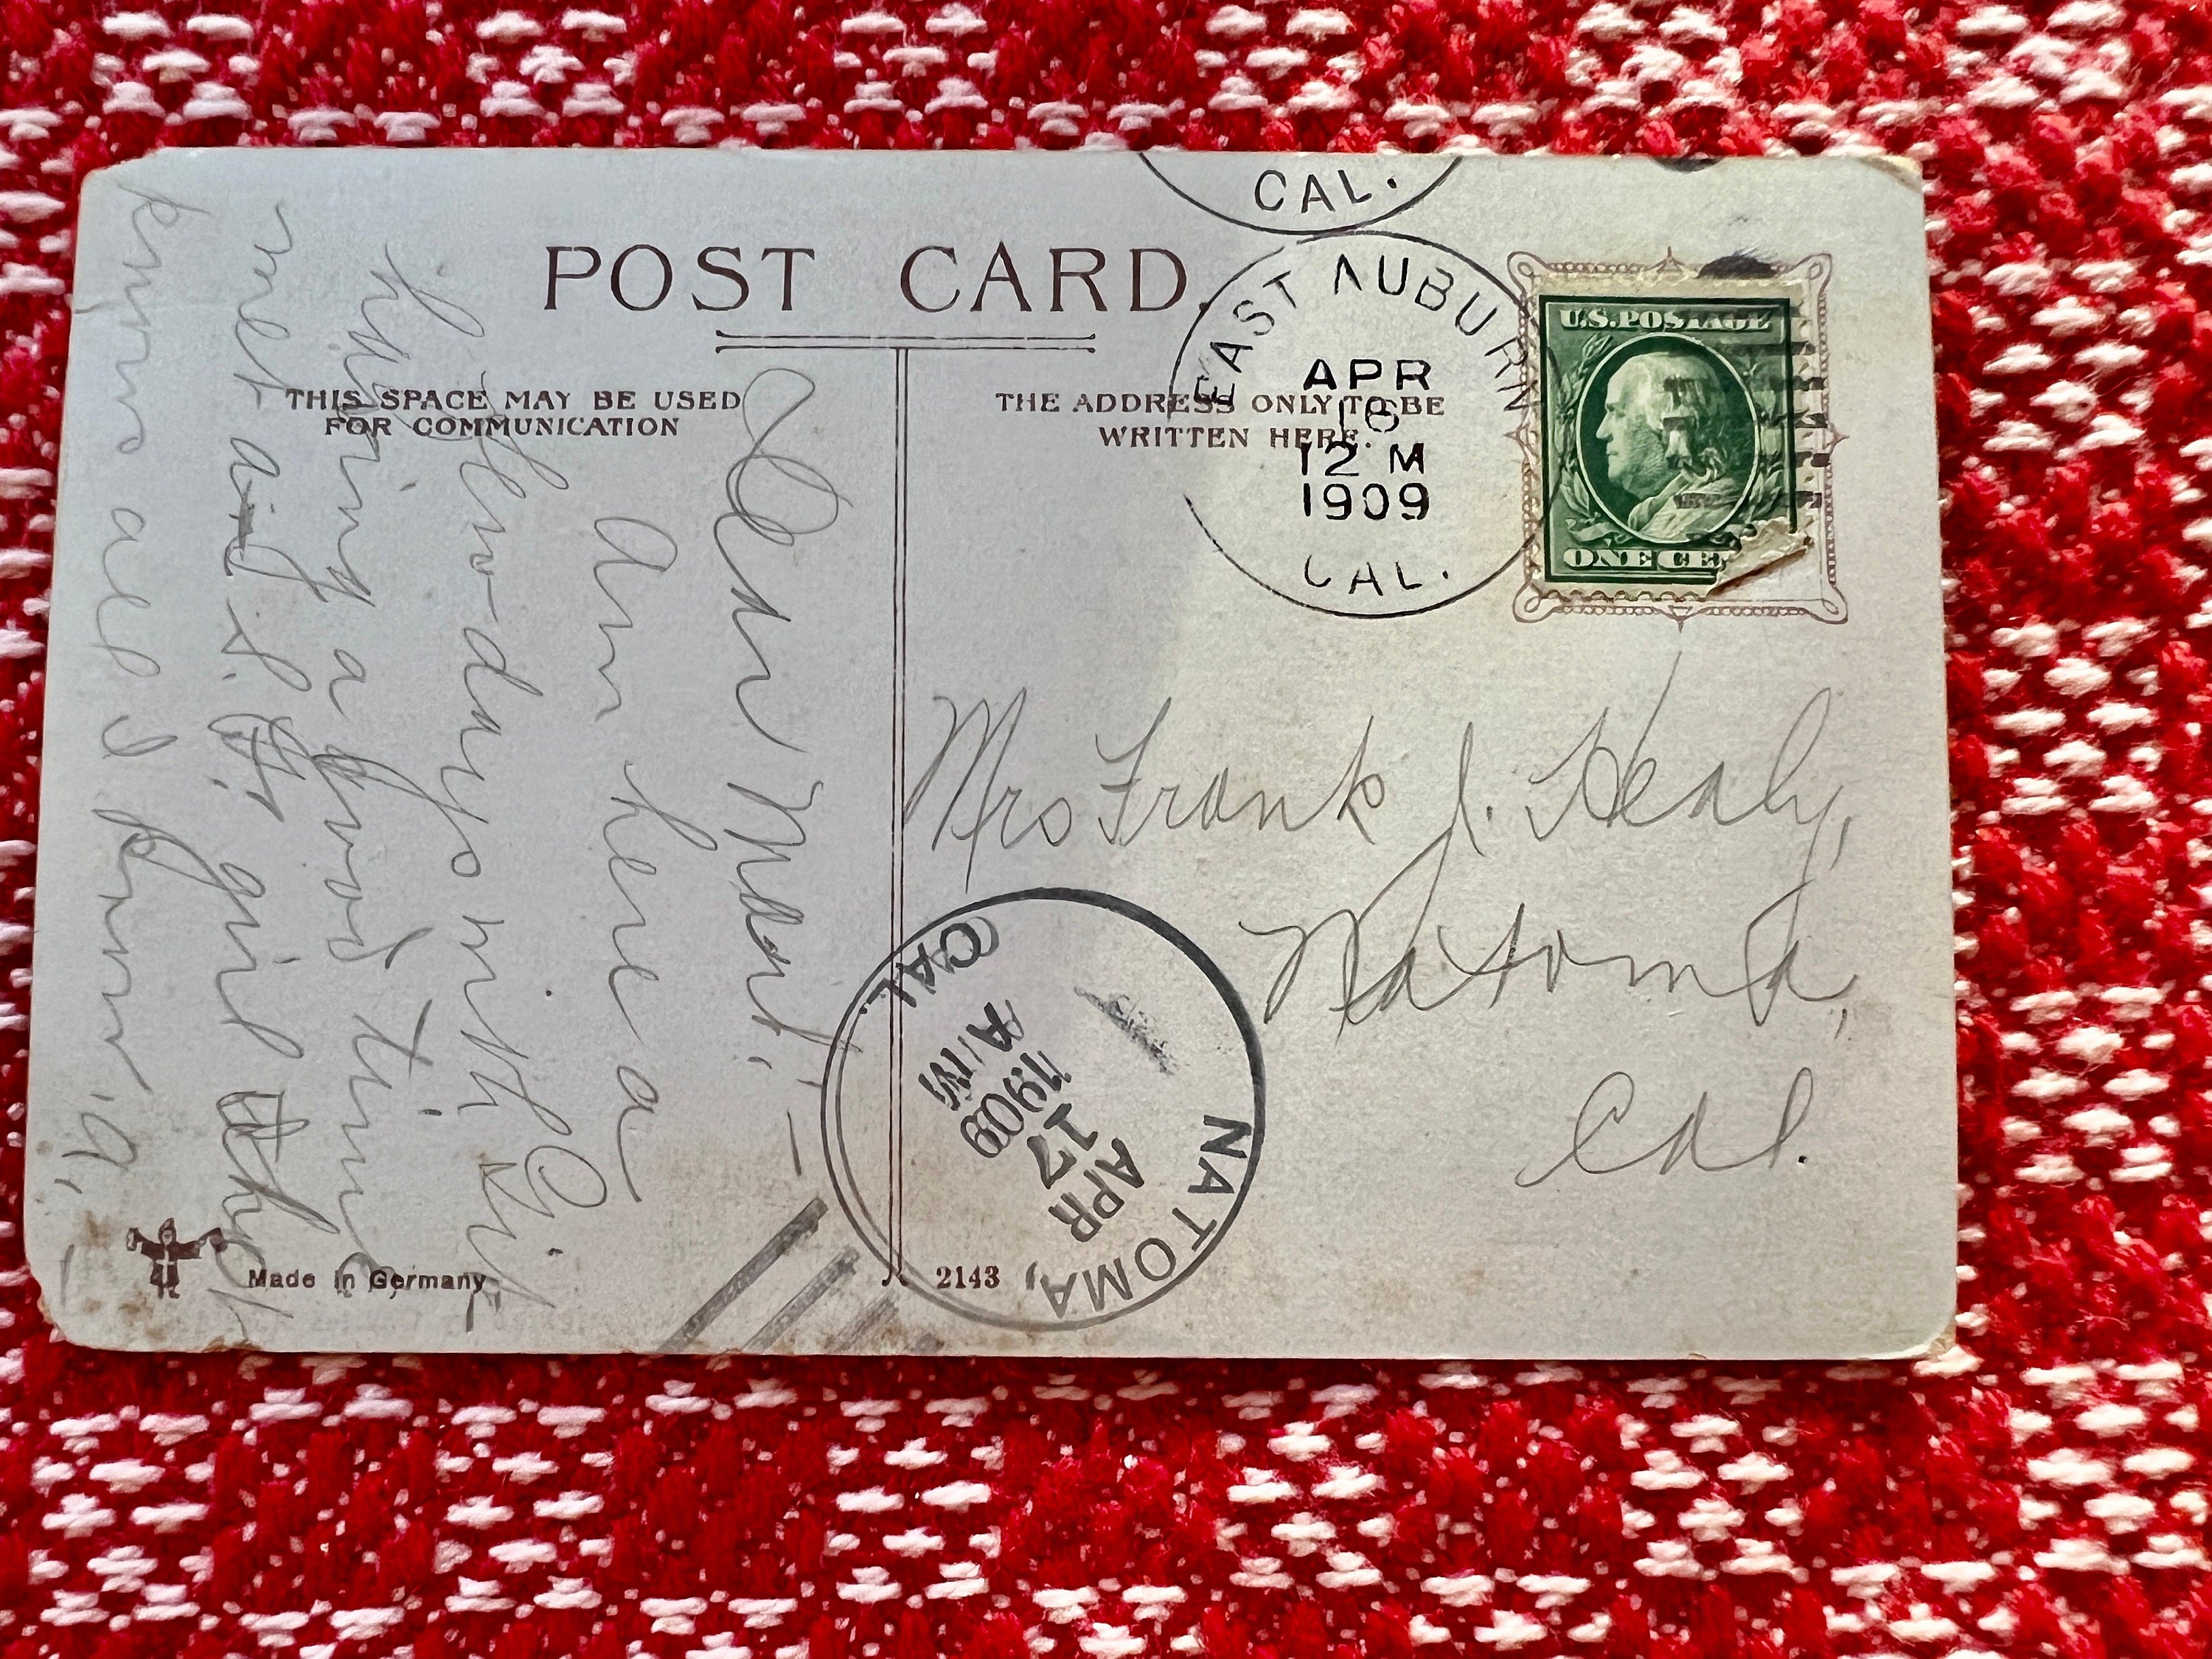 POST CARD.
THIS SPACE MAY BE USED
FOR COMMUNICATION
THE ADDRESS ONLY TO BE
WRITTEN HERE.
CAL.
EAST AUBURN
APR
16
12 M
1909
CAL.
U.S. POSTAGE
ONE CE
Mrs Frank J. Healy,
Natoma,
Cal.
NATOMA,
APR
17
1909
AM
CAL.
Dear
Am here a
few days with
having a good time
met a girl
knew all I knew
Made in Germany
2143